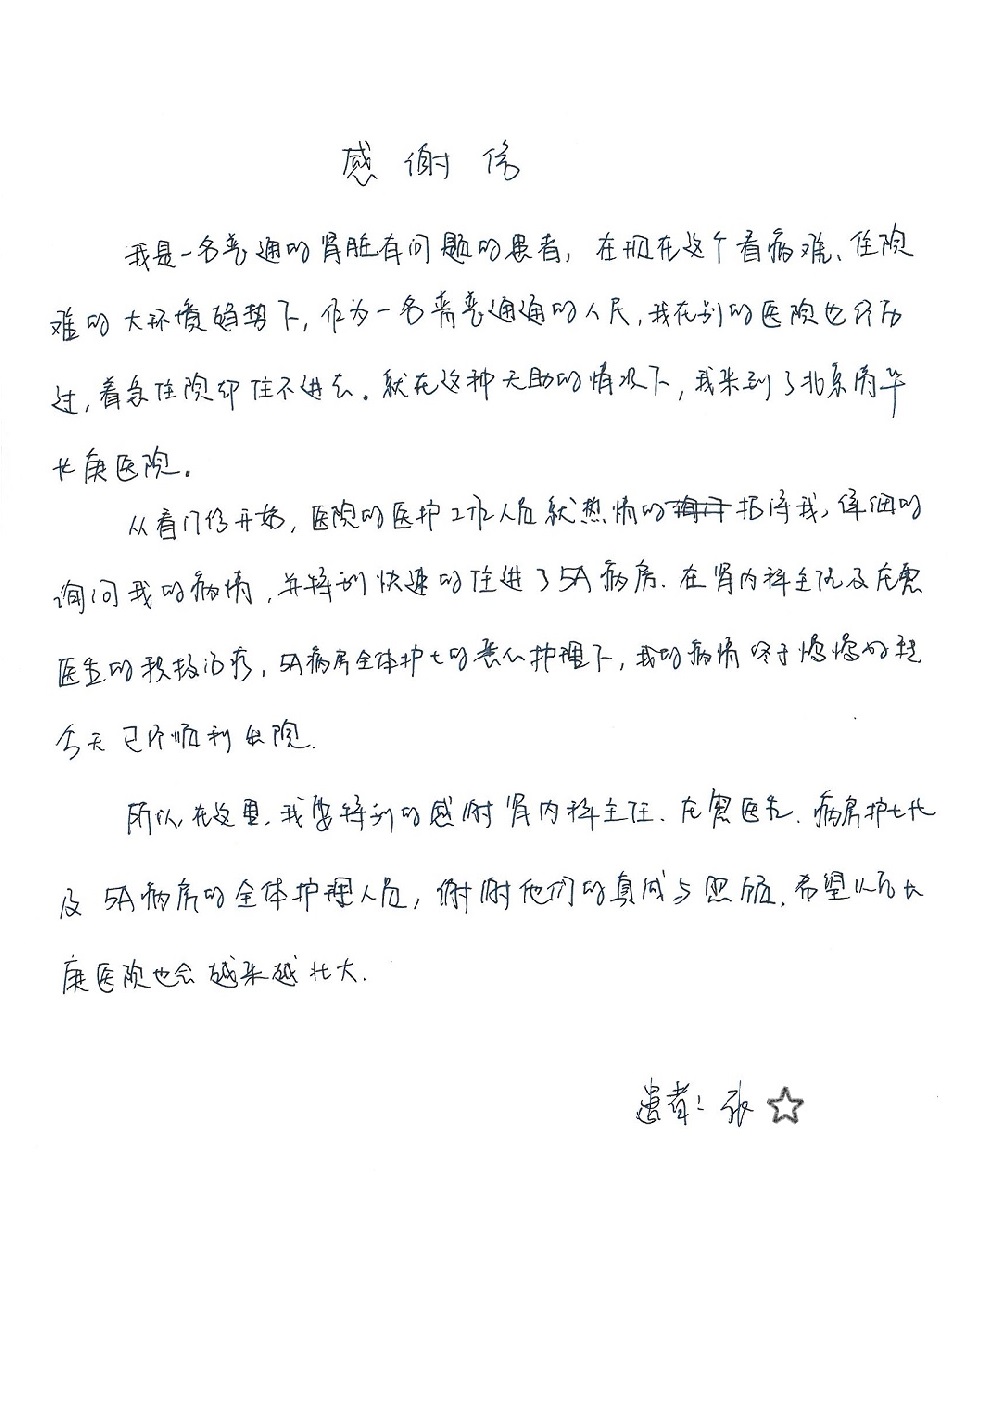 感谢信
我是一名普通的肾脏有问题的患者，在现在这个看病难、住院
难的大环境趋势下，作为一名普普通通的人民，我在别的医院也经历
过，着急住院却住不进去。就在这种无助的情况下，我来到了北京清华
长庚医院。
从看门诊开始，医院的医护工作人员就热情的招待我，详细的
询问我的病情，并特别快速的住进了5A病房.在肾内科主任及左
医生的积极治疗，5A病房全体护士的悉心护理下，我的病情终于慢慢好转
今天已经顺利出院.
所以，在这里，我要特别的感谢肾内科主任.左医生.病房护士长
及5A病房的全体护理人员，谢谢他们的真诚与照顾.希望以后长
庚医院也会越来越壮大.
患者：张☆